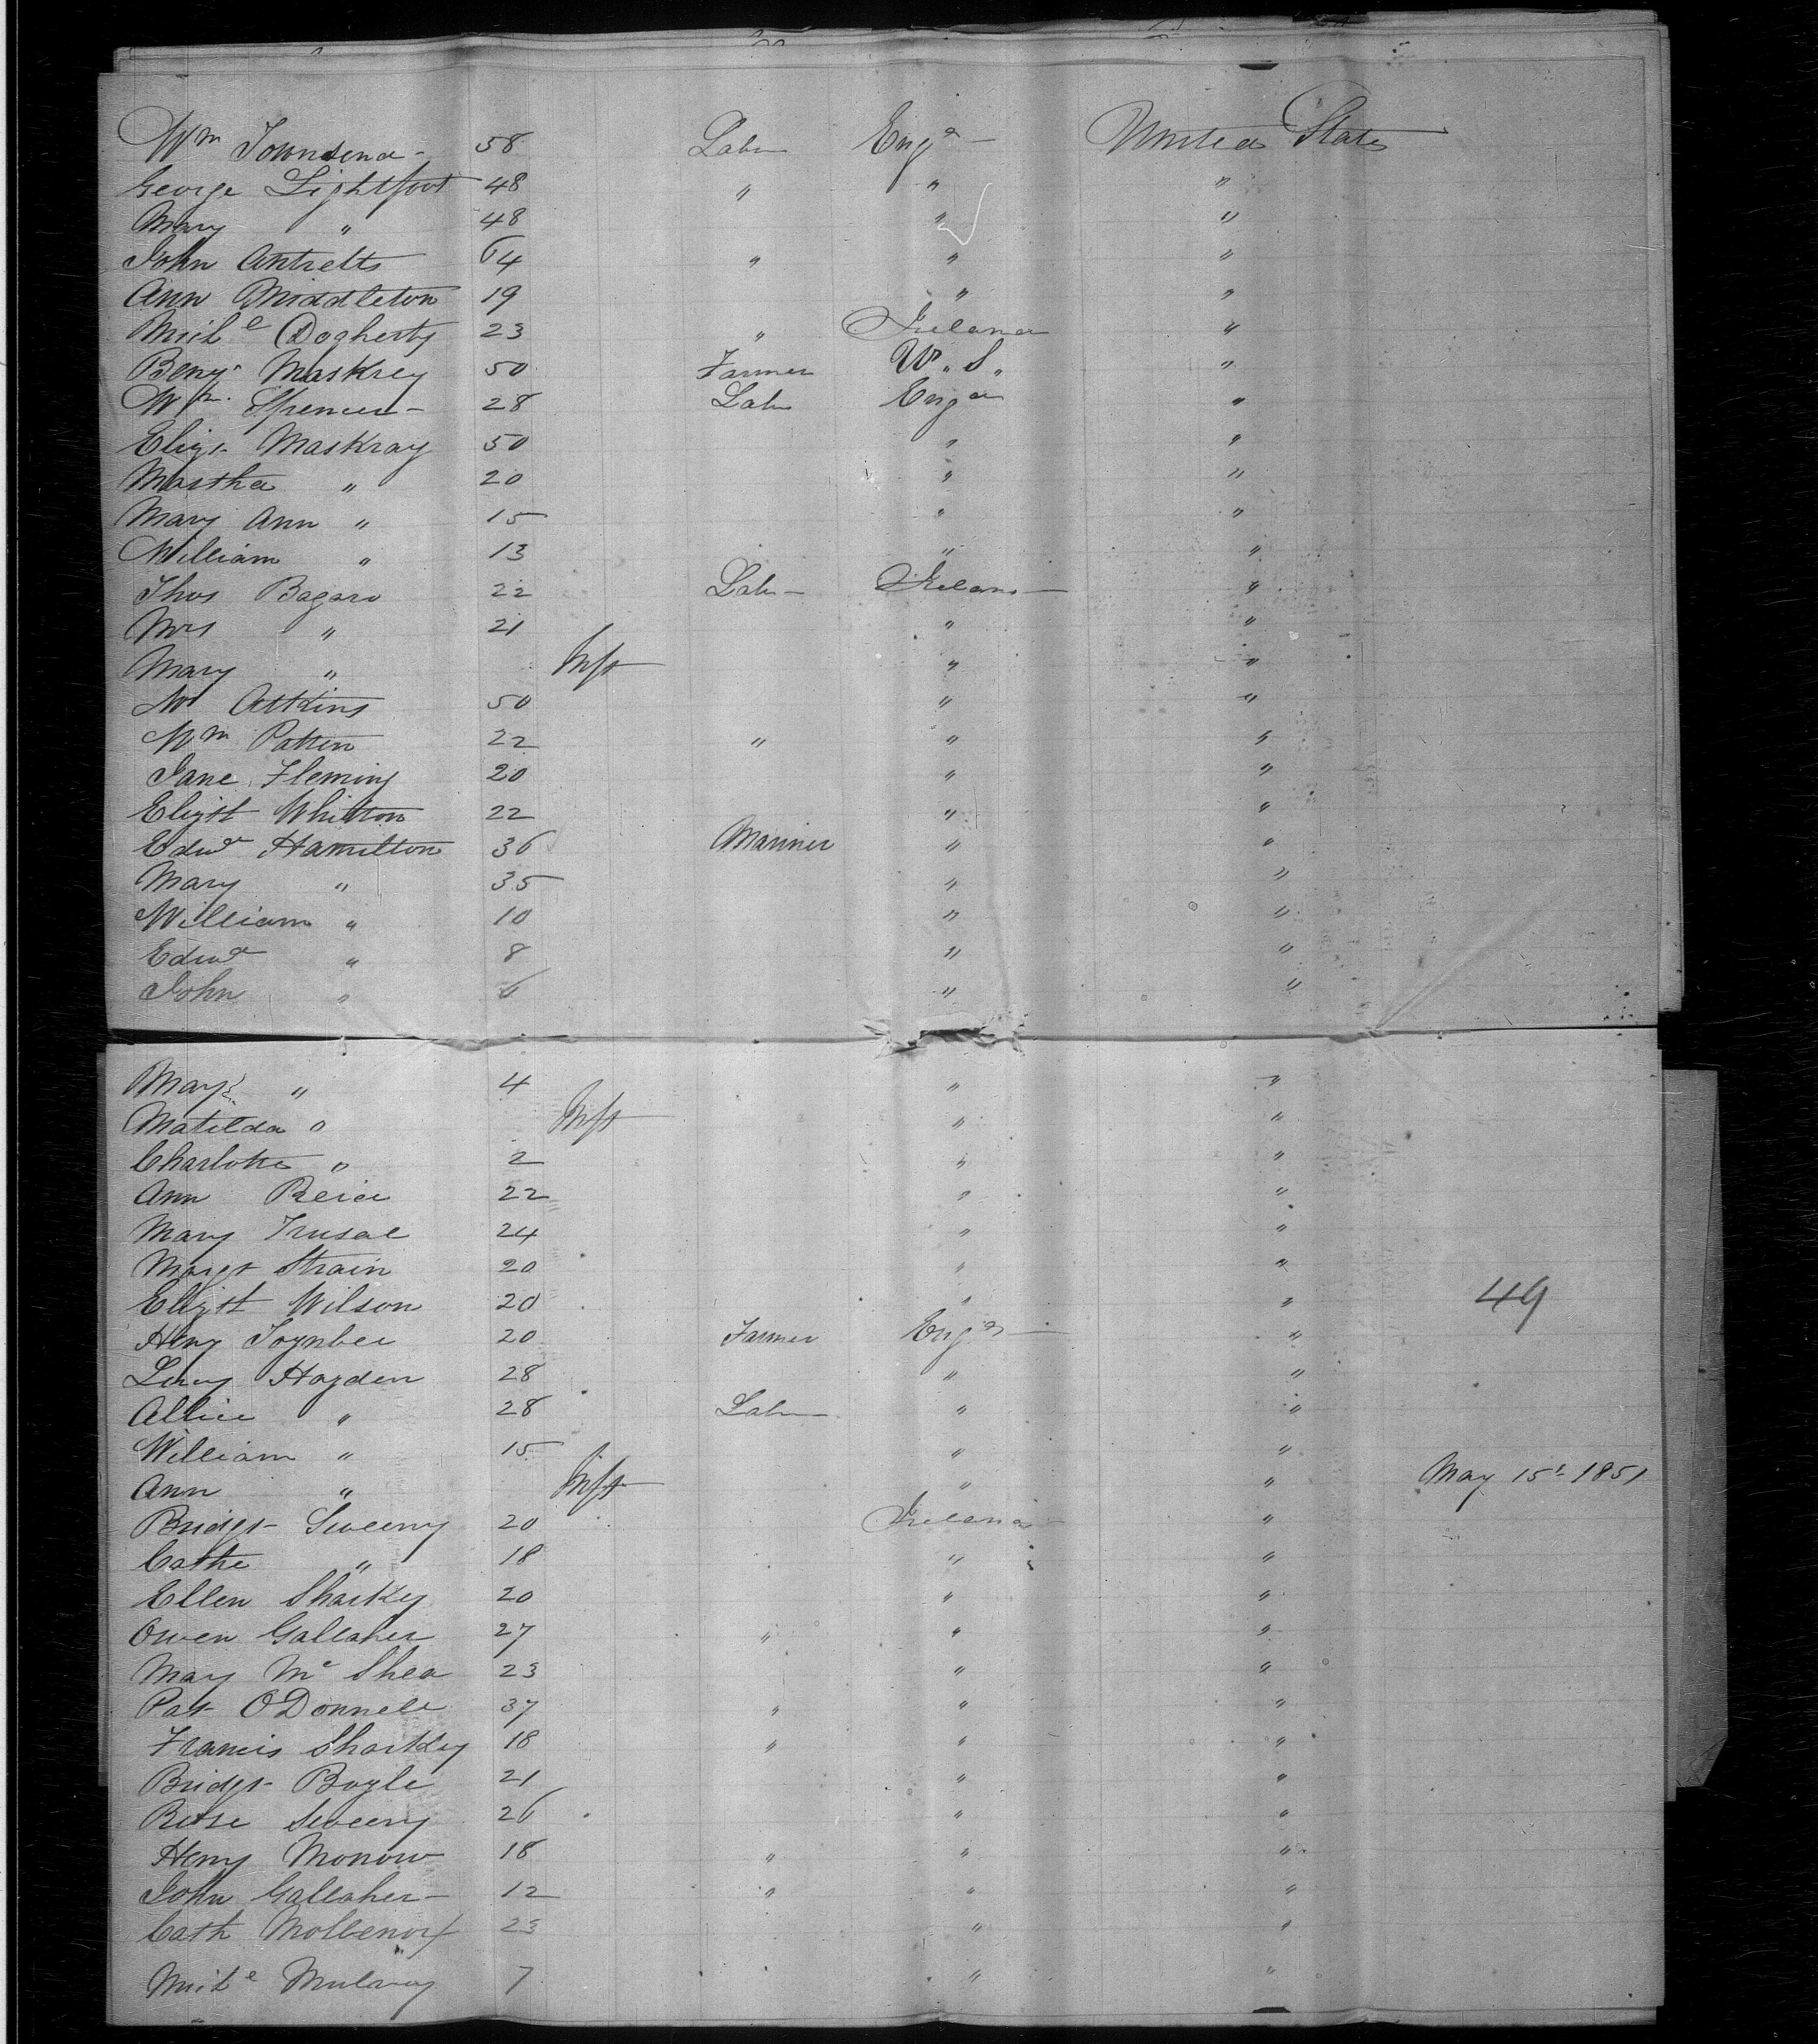 Wm Townsend - 58 Labr Engd United States
George Lightfoot 48 " " "
Mary " 48 " "
John Antretts 64 " " "
Ann Middleton 19 " "
Michl Dogherty 23 " Ireland "
Benj. Maskrey 50 Farmer U.S. "
Wm. Spencer - 28 Labr Engd "
Eliza Maskray 50 " "
Martha " 20 " "
Mary Ann " 15 " "
William " 13 " "
Thos 22 Labr - Ireland "
Mrs " 21 " "
Mary " Inft " "
Atkins 50 " "
Wm Patten 22 " " "
Jane Fleming 20 " "
Elizth Whitton 22 " "
Edwd Hamilton 36 Mariner " "
Mary " 35 " "
William " 10 " "
Edwd " 8 " "
John " 6 " "
Mary " 4 " "
Matilda " Inft " "
Charlotte " 2 " "
Ann Reid 22 " "
Mary 24 " "
Margt Strain 20 " "
Elizth Wilson 20 " "
49
Heny Toynbee 20 Farmer Engd "
Hayden 28 " "
Allice " 28 Labr " "
William " 15 " "
Ann " Inft " " May 15t 1851
Bridgt Sweeny 20 Ireland "
Cathe " 18 " "
Ellen Sharkey 20 " "
Owen Gallaher 27 " " "
Mary Mc Shea 23 " "
Pat O'Donnell 37 " " "
Francis Sharkey 18 " " "
Bridgt Boyle 21 " "
Rose Sweeny 26 " "
Heny Morrow 18 " " "
John Gallaher - 12 " " "
Cath 23 " "
Michl Mulvany 7 " "